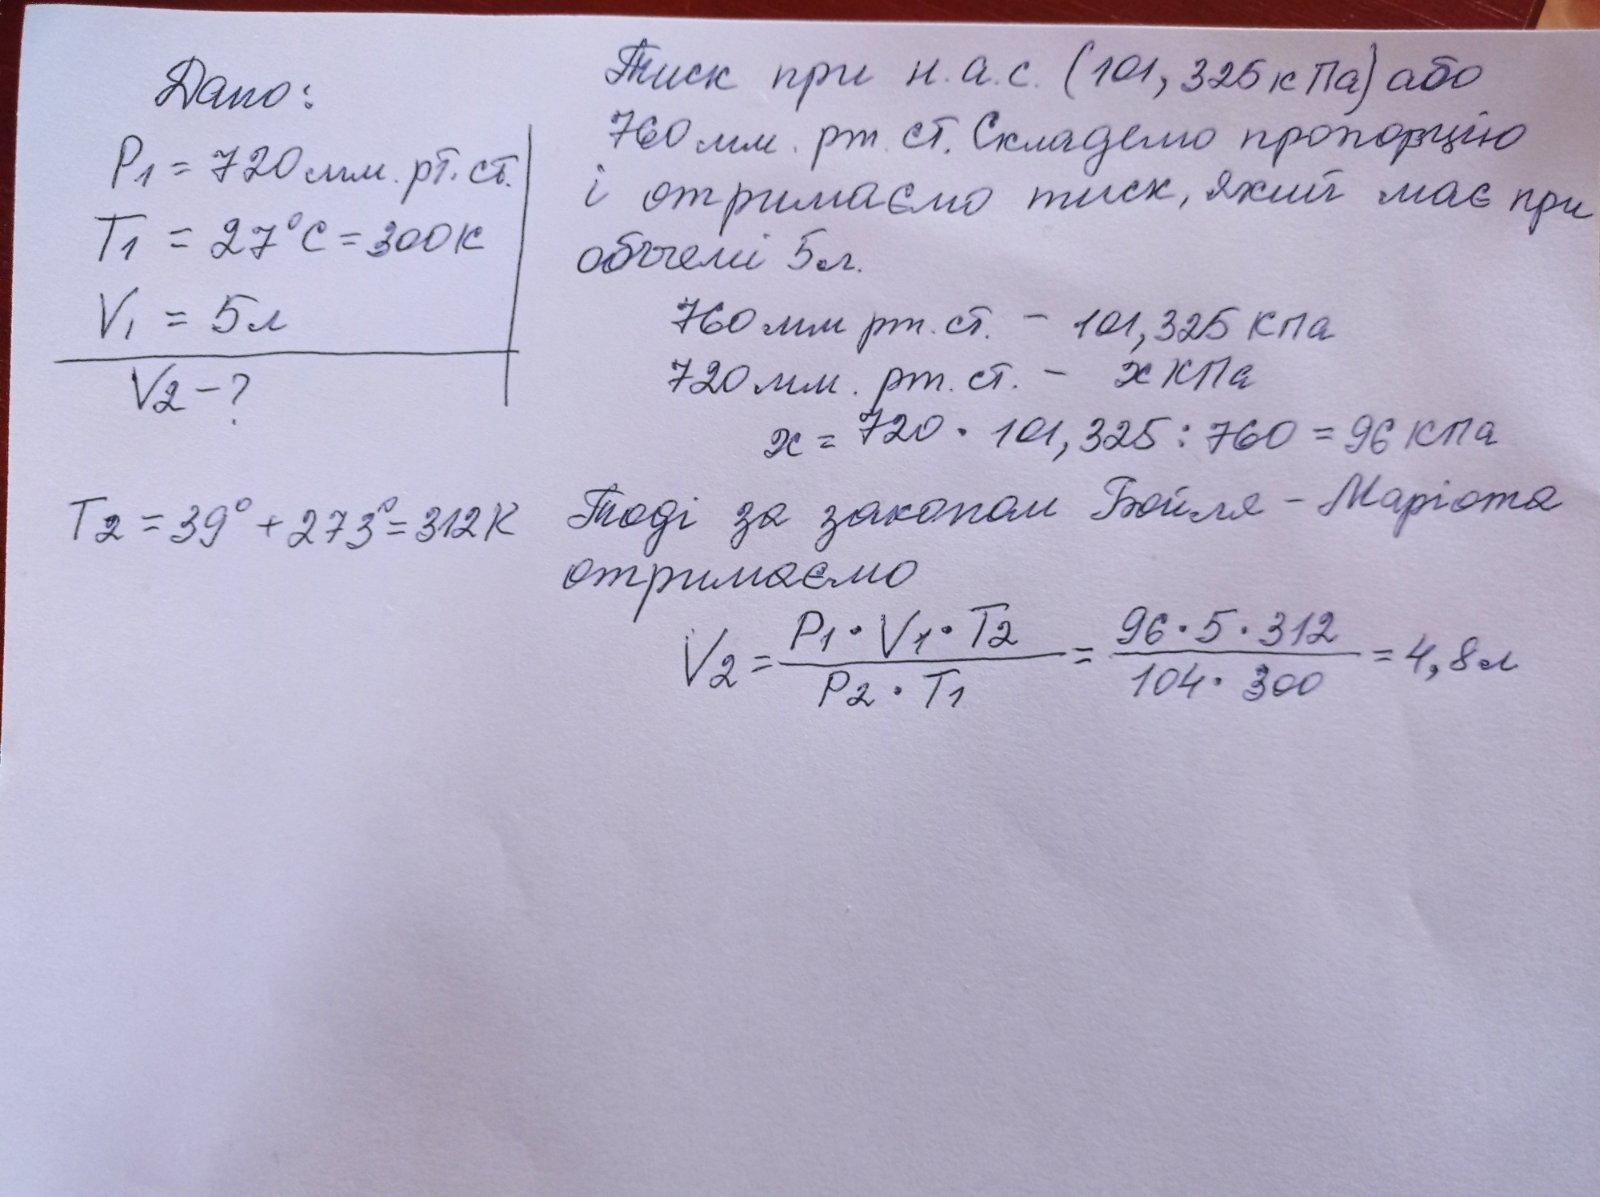 Дано:
P1 = 720 мм. рт. ст.
T1 = 27°C = 300 K
V1 = 5 л
V2 - ?
T2 = 39° + 273° = 312 K
Тиск при н. а. с. (101,325 кПа) або
760 мм. рт. ст. Складемо пропорцію
і отримаємо тиск, який має при
об'ємі 5 л.
760 мм рт. ст. - 101,325 кПа
720 мм. рт. ст. - x кПа
x = 720 · 101,325 : 760 = 96 кПа
Тоді за законом Бойля - Маріота
отримаємо
V2 = P1 · V1 · T2 / P2 · T1 = 96 · 5 · 312 / 104 · 300 = 4,8 л